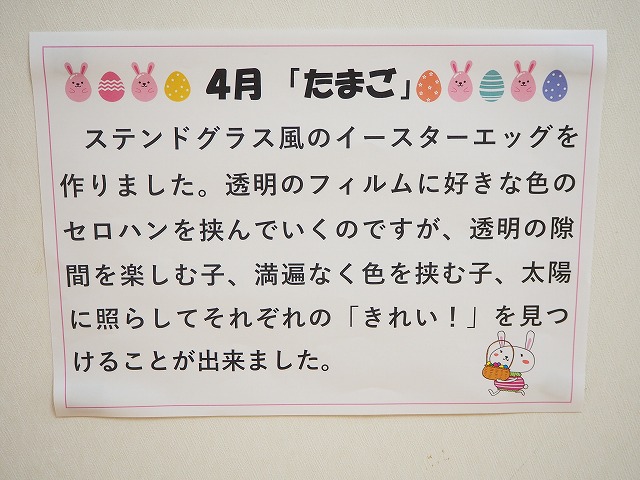 4月「たまご」
ステンドグラス風のイースターエッグを
作りました。透明のフィルムに好きな色の
セロハンを挟んでいくのですが、透明の隙
間を楽しむ子、満遍なく色を挟む子、太陽
に照らしてそれぞれの「きれい！」を見つ
けることが出来ました。